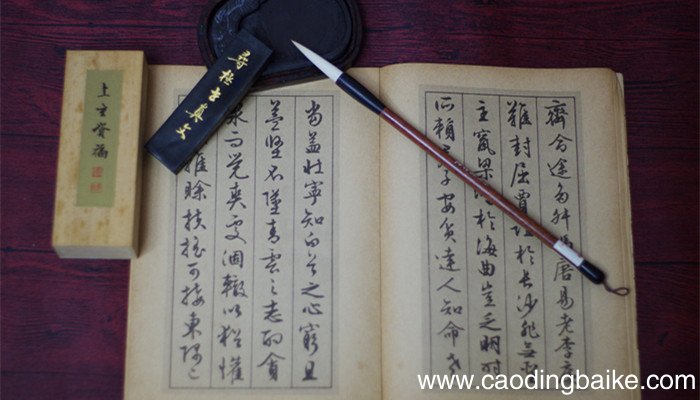 齊命途多舛易老李
難封屈賈於長沙非無
主竄梁於海曲豈乏明時
所賴子安貧達人知命老
當益壯寧知白首之心窮且
益堅不墜青雲之志酌貪
泉而覺爽處涸轍以猶懽
雖賒扶搖可接東隅已
www.caodingbaike.com